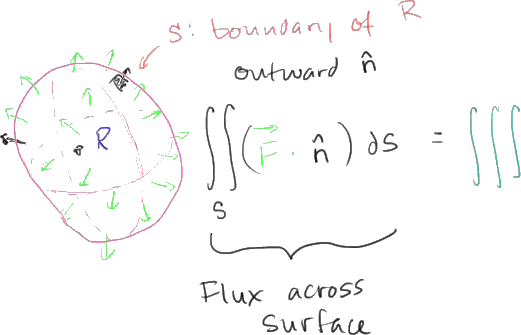 S: boundary of R
outward n̂
R
∬ (F⃗ · n̂) dS = ∭
S
Flux across
surface